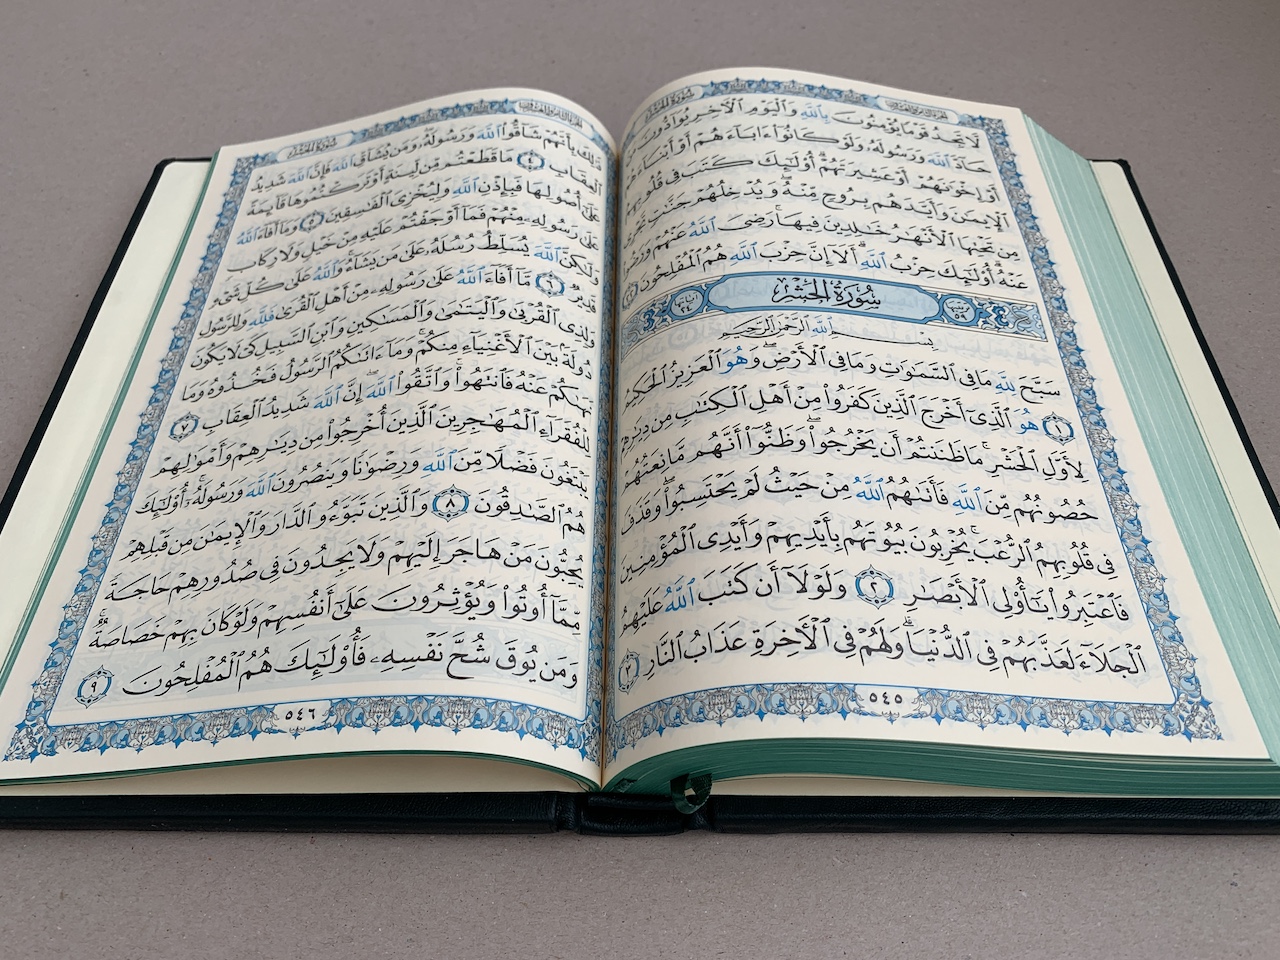 سورة الحشر
لَّا تَجِدُ قَوْمًا يُؤْمِنُونَ بِٱللَّهِ وَٱلْيَوْمِ ٱلْأَخِرِ يُوَآدُّونَ
حَآدَّ ٱللَّهَ وَرَسُولَهُۥ وَلَوْ كَانُوٓا۟ ءَابَآءَهُمْ أَوْ أَبْنَآءَهُمْ
أَوْ إِخْوَٰنَهُمْ أَوْ عَشِيرَتَهُمْ ۚ أُو۟لَٰٓئِكَ كَتَبَ فِى قُلُوبِهِمُ
ٱلْإِيمَٰنَ وَأَيَّدَهُم بِرُوحٍ مِّنْهُ ۖ وَيُدْخِلُهُمْ جَنَّٰتٍ تَجْرِى
مِن تَحْتِهَا ٱلْأَنْهَٰرُ خَٰلِدِينَ فِيهَا ۚ رَضِىَ ٱللَّهُ عَنْهُمْ وَرَضُوا۟
عَنْهُ ۚ أُو۟لَٰٓئِكَ حِزْبُ ٱللَّهِ ۚ أَلَآ إِنَّ حِزْبَ ٱللَّهِ هُمُ ٱلْمُفْلِحُونَ ٢٢
ترتيبها ٥٩ سُورَةُ الحَشْرِ آياتها ٢٤
بِسْمِ ٱللَّهِ ٱلرَّحْمَٰنِ ٱلرَّحِيمِ
سَبَّحَ لِلَّهِ مَا فِى ٱلسَّمَٰوَٰتِ وَمَا فِى ٱلْأَرْضِ ۖ وَهُوَ ٱلْعَزِيزُ ٱلْحَكِيمُ
١ هُوَ ٱلَّذِىٓ أَخْرَجَ ٱلَّذِينَ كَفَرُوا۟ مِنْ أَهْلِ ٱلْكِتَٰبِ مِن دِيَٰرِهِمْ
لِأَوَّلِ ٱلْحَشْرِ ۚ مَا ظَنَنتُمْ أَن يَخْرُجُوا۟ ۖ وَظَنُّوٓا۟ أَنَّهُم مَّانِعَتُهُمْ
حُصُونُهُم مِّنَ ٱللَّهِ فَأَتَىٰهُمُ ٱللَّهُ مِنْ حَيْثُ لَمْ يَحْتَسِبُوا۟ ۖ وَقَذَفَ
فِى قُلُوبِهِمُ ٱلرُّعْبَ ۚ يُخْرِبُونَ بُيُوتَهُم بِأَيْدِيهِمْ وَأَيْدِى ٱلْمُؤْمِنِينَ
فَٱعْتَبِرُوا۟ يَٰٓأُو۟لِى ٱلْأَبْصَٰرِ ٢ وَلَوْلَآ أَن كَتَبَ ٱللَّهُ عَلَيْهِمُ
ٱلْجَلَآءَ لَعَذَّبَهُمْ فِى ٱلدُّنْيَا ۖ وَلَهُمْ فِى ٱلْأَخِرَةِ عَذَابُ ٱلنَّارِ ٣
٥٤٥
سورة الحشر
ذَٰلِكَ بِأَنَّهُمْ شَآقُّوا۟ ٱللَّهَ وَرَسُولَهُۥ ۖ وَمَن يُشَآقِّ ٱللَّهَ فَإِنَّ ٱللَّهَ شَدِيدُ
ٱلْعِقَابِ ٤ مَا قَطَعْتُم مِّن لِّينَةٍ أَوْ تَرَكْتُمُوهَا قَآئِمَةً
عَلَىٰٓ أُصُولِهَا فَبِإِذْنِ ٱللَّهِ وَلِيُخْزِىَ ٱلْفَٰسِقِينَ ٥ وَمَآ أَفَآءَ ٱللَّهُ
عَلَىٰ رَسُولِهِۦ مِنْهُمْ فَمَآ أَوْجَفْتُمْ عَلَيْهِ مِنْ خَيْلٍ وَلَا رِكَابٍ
وَلَٰكِنَّ ٱللَّهَ يُسَلِّطُ رُسُلَهُۥ عَلَىٰ مَن يَشَآءُ ۚ وَٱللَّهُ عَلَىٰ كُلِّ شَىْءٍ
قَدِيرٌ ٦ مَّآ أَفَآءَ ٱللَّهُ عَلَىٰ رَسُولِهِۦ مِنْ أَهْلِ ٱلْقُرَىٰ فَلِلَّهِ وَلِلرَّسُولِ
وَلِذِى ٱلْقُرْبَىٰ وَٱلْيَتَٰمَىٰ وَٱلْمَسَٰكِينِ وَٱبْنِ ٱلسَّبِيلِ كَىْ لَا يَكُونَ
دُولَةًۢ بَيْنَ ٱلْأَغْنِيَآءِ مِنكُمْ ۚ وَمَآ ءَاتَىٰكُمُ ٱلرَّسُولُ فَخُذُوهُ وَمَا
نَهَىٰكُمْ عَنْهُ فَٱنتَهُوا۟ ۚ وَٱتَّقُوا۟ ٱللَّهَ ۖ إِنَّ ٱللَّهَ شَدِيدُ ٱلْعِقَابِ ٧
لِلْفُقَرَآءِ ٱلْمُهَٰجِرِينَ ٱلَّذِينَ أُخْرِجُوا۟ مِن دِيَٰرِهِمْ وَأَمْوَٰلِهِمْ
يَبْتَغُونَ فَضْلًا مِّنَ ٱللَّهِ وَرِضْوَٰنًا وَيَنصُرُونَ ٱللَّهَ وَرَسُولَهُۥٓ ۚ أُو۟لَٰٓئِكَ
هُمُ ٱلصَّٰدِقُونَ ٨ وَٱلَّذِينَ تَبَوَّءُو ٱلدَّارَ وَٱلْإِيمَٰنَ مِن قَبْلِهِمْ
يُحِبُّونَ مَنْ هَاجَرَ إِلَيْهِمْ وَلَا يَجِدُونَ فِى صُدُورِهِمْ حَاجَةً
مِّمَّآ أُوتُوا۟ وَيُؤْثِرُونَ عَلَىٰٓ أَنفُسِهِمْ وَلَوْ كَانَ بِهِمْ خَصَاصَةٌ ۚ
وَمَن يُوقَ شُحَّ نَفْسِهِۦ فَأُو۟لَٰٓئِكَ هُمُ ٱلْمُفْلِحُونَ ٩
٥٤٦